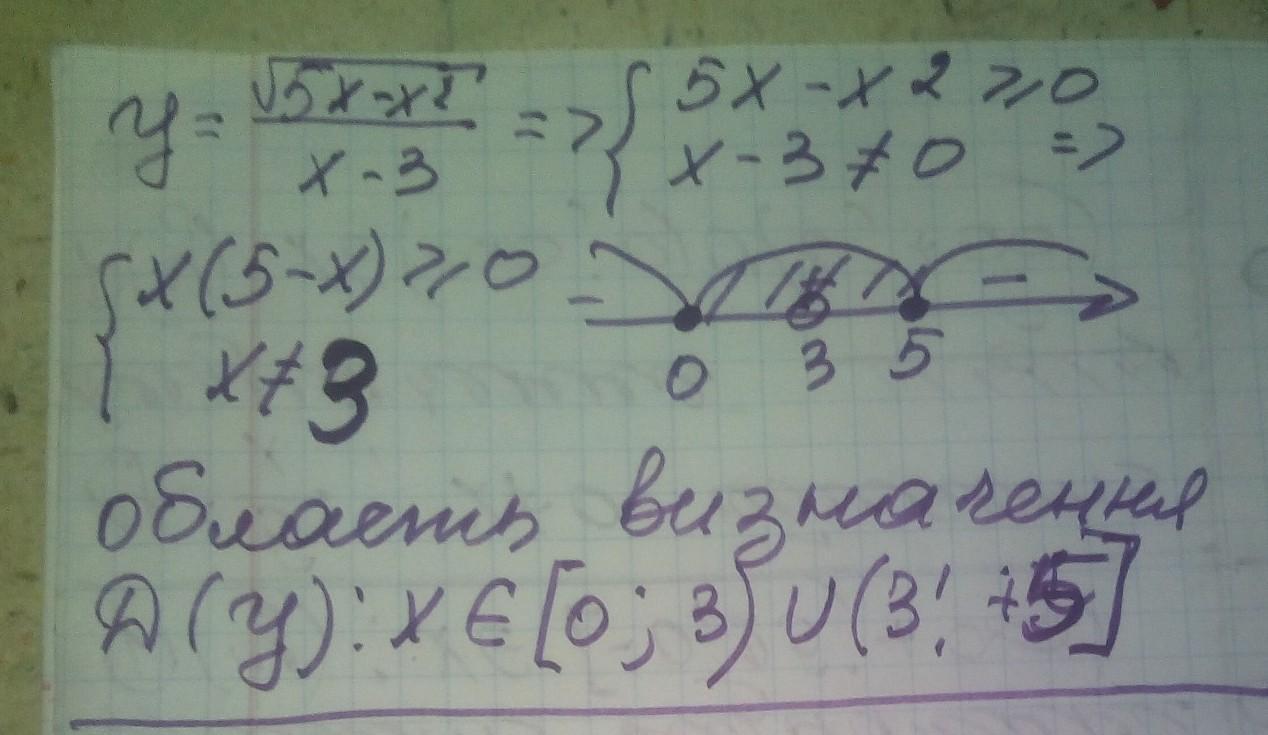 y = √(5x-x²)/(x-3) => { 5x-x2 ≥ 0
x-3 ≠ 0 =>
{ x(5-x) ≥ 0
x ≠ 3
- -
0 3 5
область визначення
Д(y): x ∈ [0; 3) ∪ (3; +5]